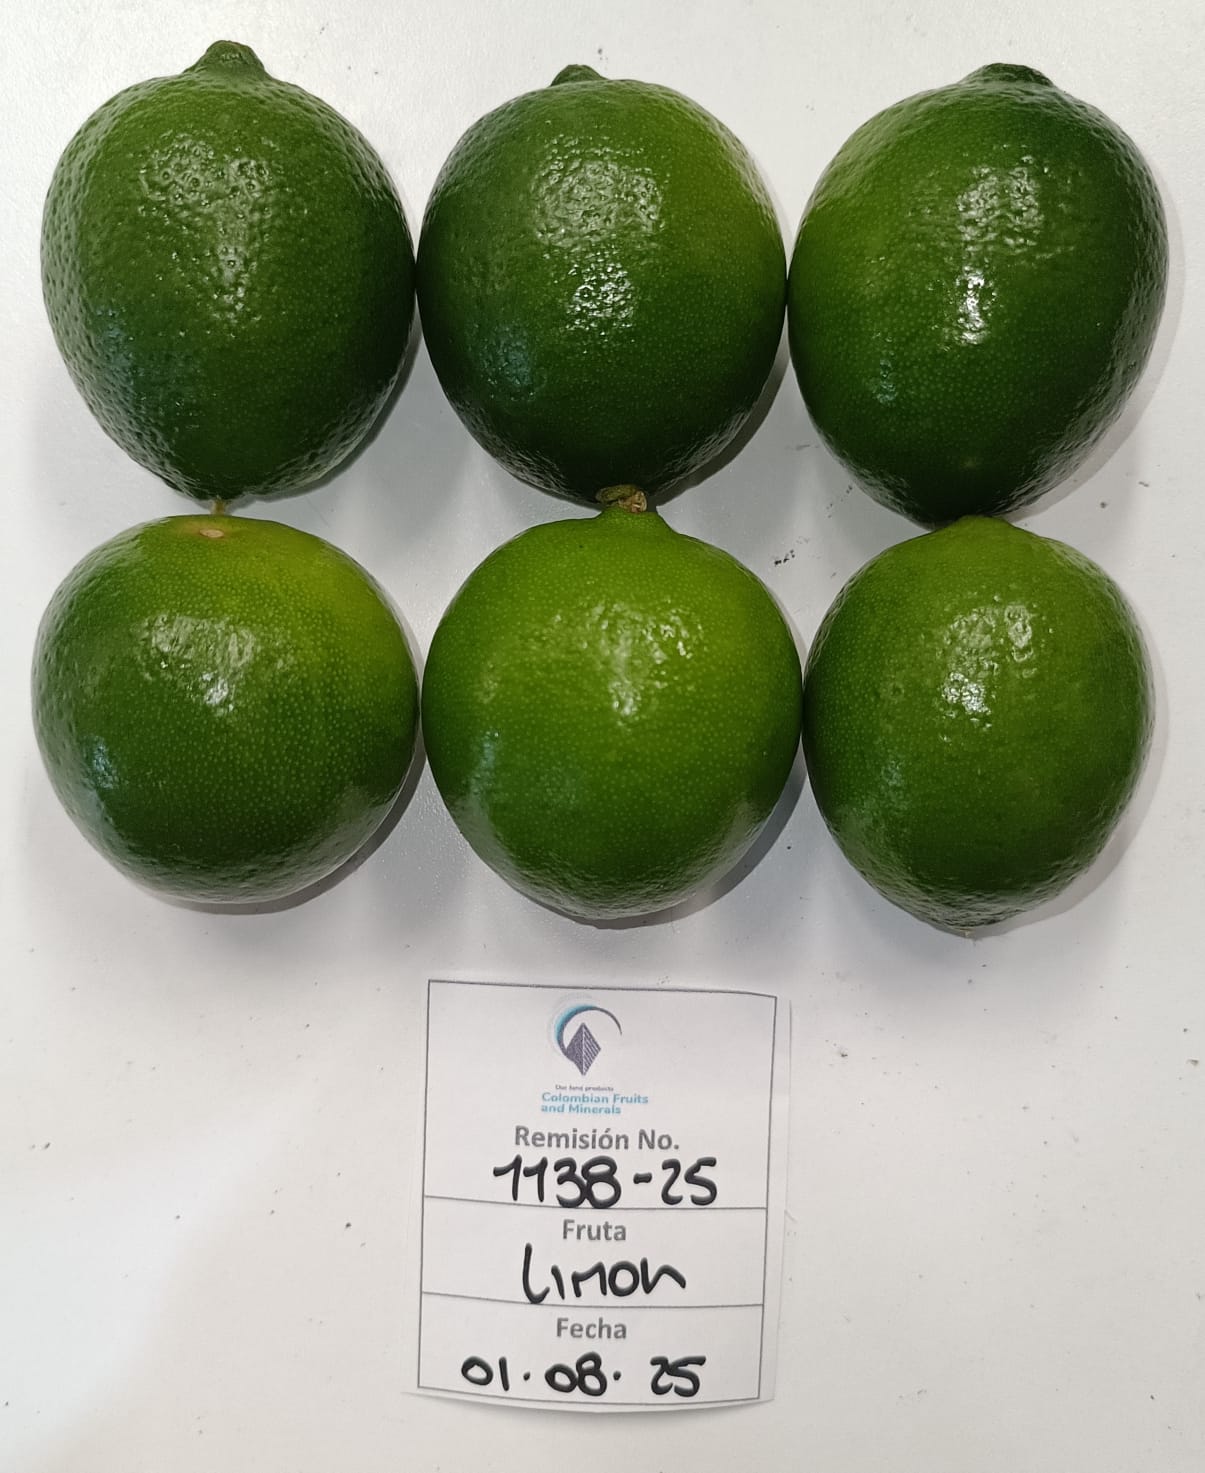 Our land products
Colombian Fruits
and Minerals
Remisión No.
1138-25
Fruta
Limon
Fecha
01.08.25